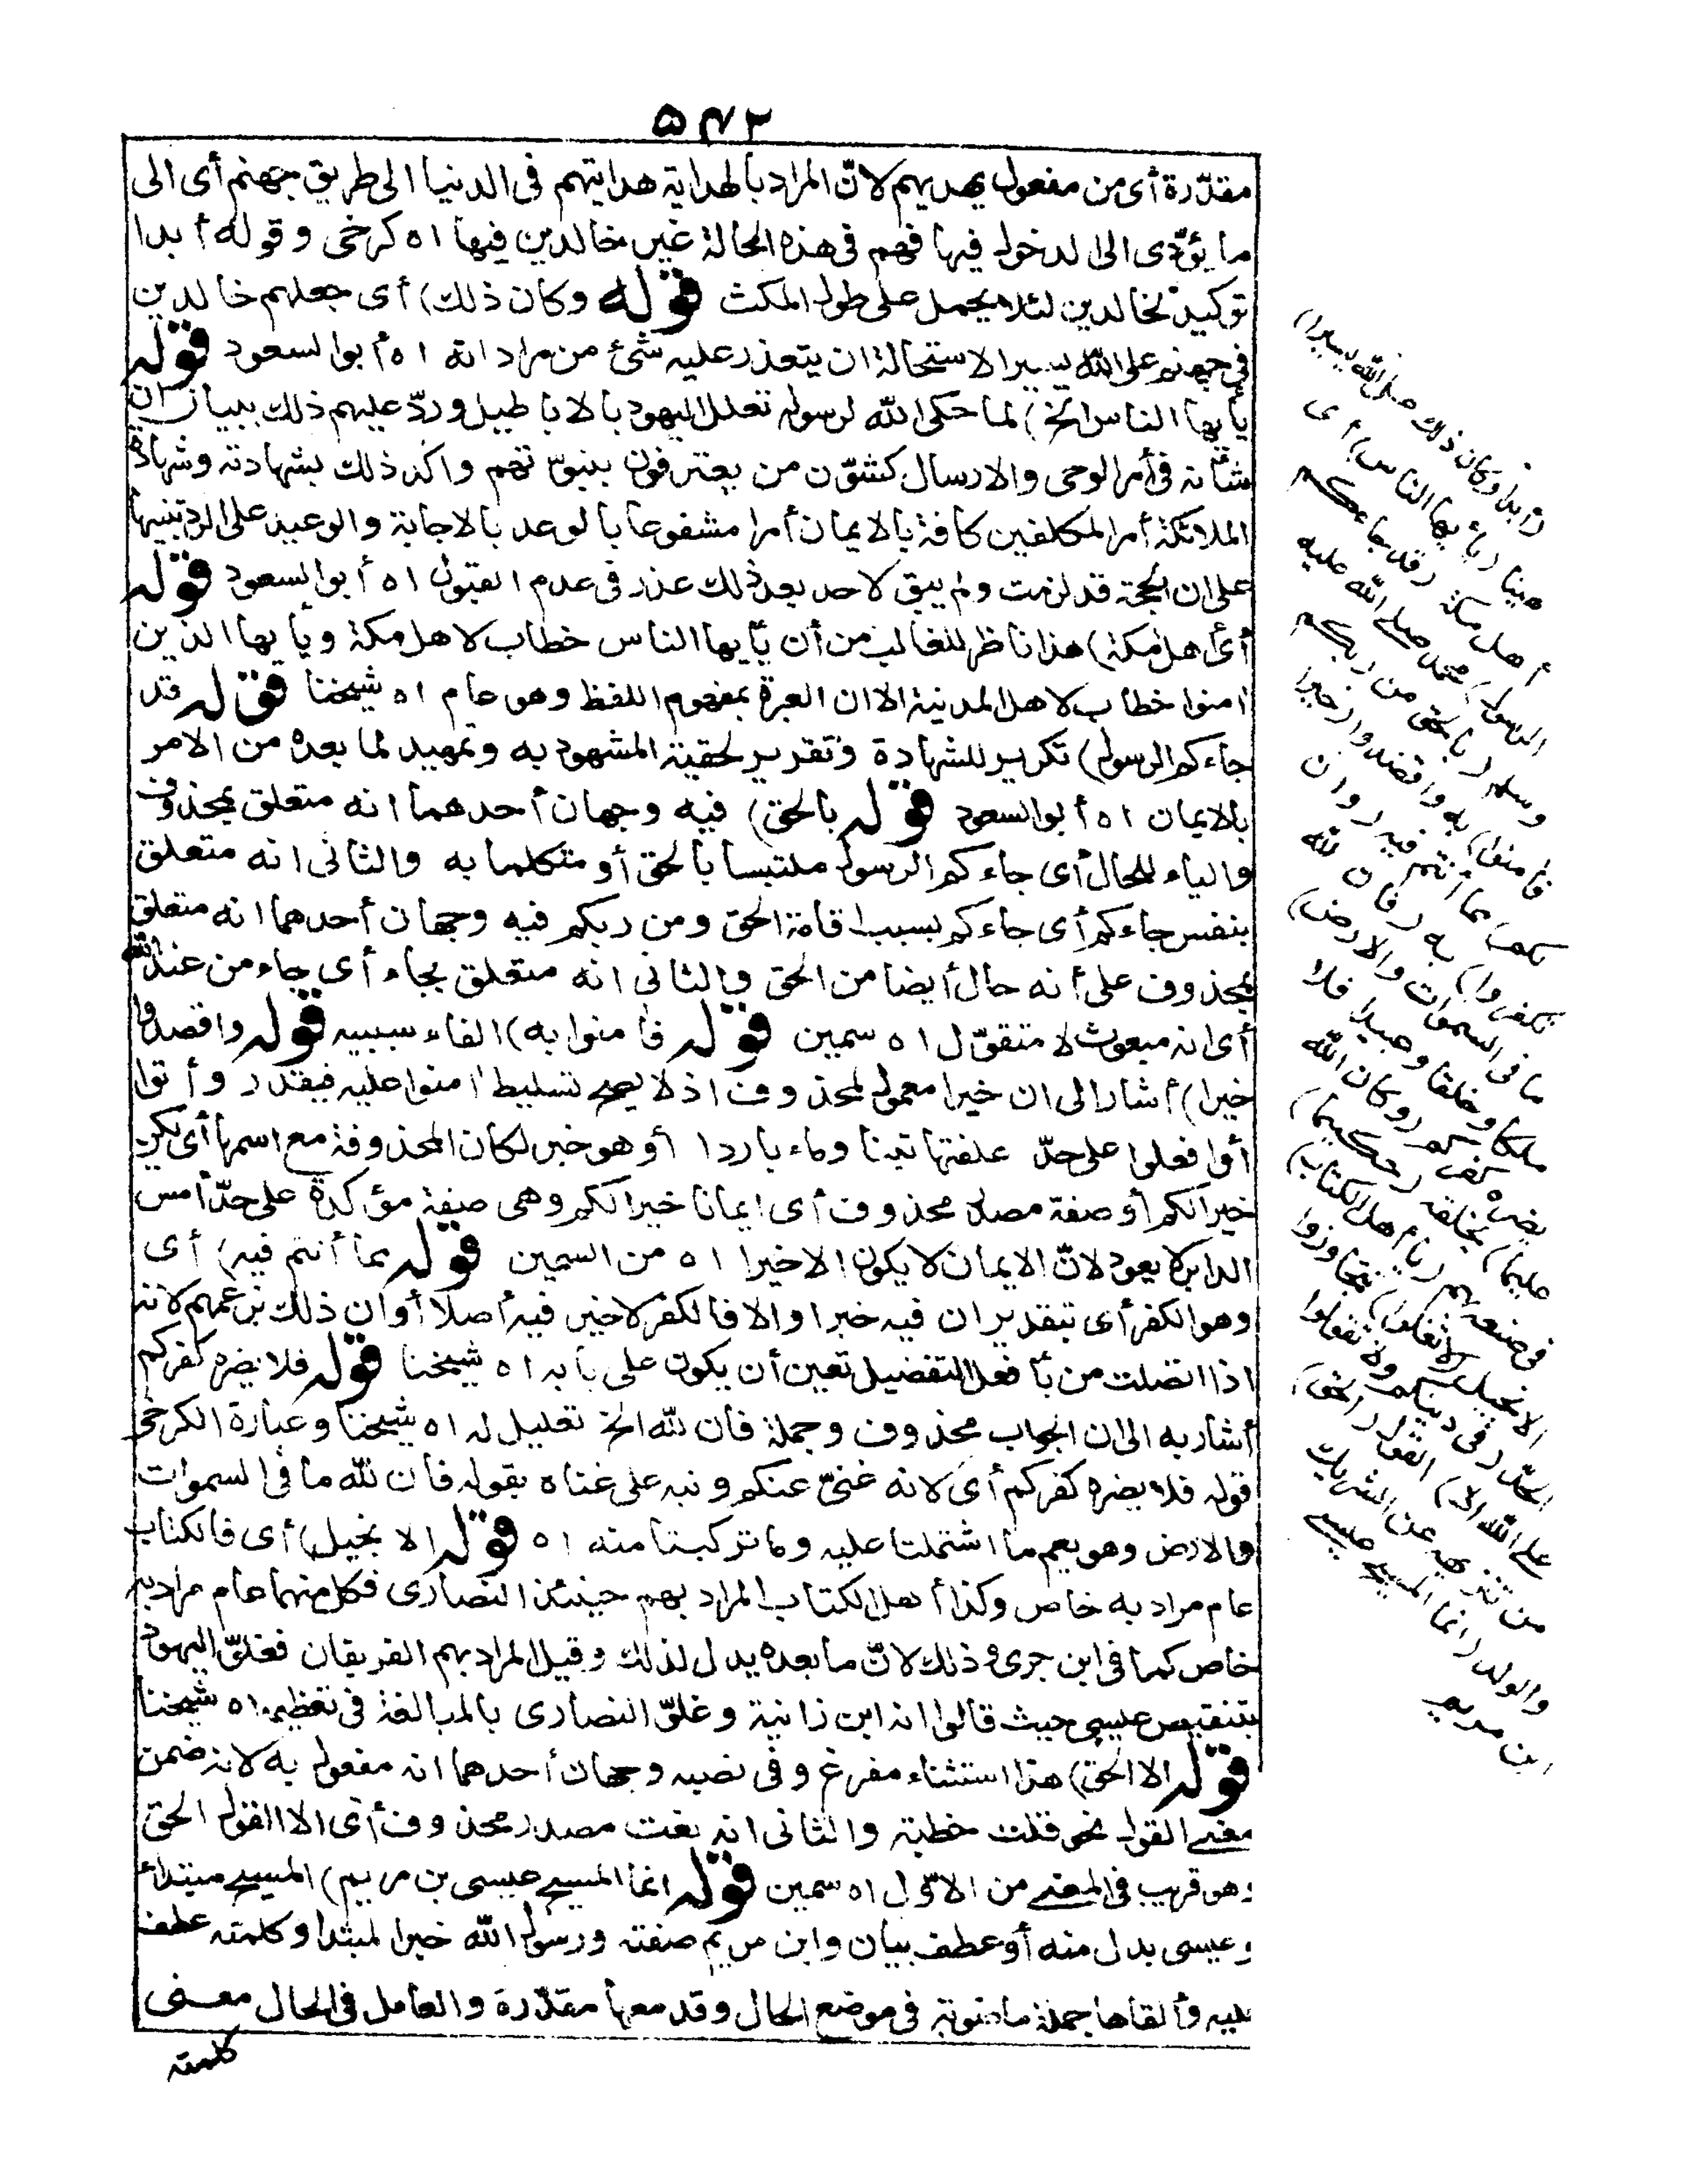 ٥٤٢
مقدّرة أى من مفعول يهديهم لانّ المراد بالهداية هدايتهم فى الدنيا الى طريق جهنم أى الى
ما يؤدّى الى الدخول فيها فهم فى هذه الحالة غير خالدين فيها اه كرخى وقوله أبدا
توكيد لخالدين لئلا يحمل على طول المكث قوله وكان ذلك) أى جعلهم خالدين
فى جهنم على الله يسيرا لاستحالة ان يتعذر عليه شئ من مراداته اه أبو السعود قوله
يأيها الناس الخ) لما حكى الله لرسوله تعلل اليهود بالاباطيل وردّ عليهم ذلك ببيان ان
شأنه فى أمر الوحى والارسال كشؤن من يعترفون بنبوّتهم واكد ذلك بشهادته وشهادة
الملائكة أمر المكلفين كافة بالايمان أمرا مشفوعا بالوعد بالاجابة والوعيد على الرد تنبيها
على ان الحجة قد لزمت ولم يبق لاحد بعد ذلك عذر فى عدم القبول اه أبو السعود قوله
أى أهل مكة) هذا ناظر للغالب من أن يأيها الناس خطاب لاهل مكة ويأيها الذين
آمنوا خطاب لاهل المدينة الا ان العبرة بمفهوم اللفظ وهو عام اه شيخنا قوله قد
جاءكم الرسول) تكرير للشهادة وتقرير لحقية المشهود به وتمهيد لما بعده من الامر
بالايمان اه أبو السعود قوله بالحق) فيه وجهان أحدهما انه متعلق بمحذوف
والباء للحال أى جاءكم الرسول ملتبسا بالحق أو متكلما به والثانى انه متعلق
بنفس جاءكم أى جاءكم بسبب اقامة الحق ومن ربكم فيه وجهان أحدهما انه متعلق
بمحذوف على أنه حال أيضا من الحق والثانى انه متعلق بجاء أى جاء من عند الله
أى انه مبعوث لا متقوّل اه سمين قوله فآمنوا به) الفاء سببيه قوله واقصدوا
خيرا) أشار الى ان خيرا معمول لمحذوف اذ لا يصح تسليط آمنوا عليه فيقدر وأتوا
أو افعلوا على حدّ علفتها تبنا وماء باردا أو هو خبر لكان المحذوفة مع اسمها أى يكن
خيرا لكم أو صفة مصدر محذوف أى ايمانا خيرا لكم وهى صفة مؤكدة على حدّ أمس
الدابر لا يعود لانّ الايمان لا يكون الا خيرا اه من السمين قوله مما أنتم فيه) أى
وهو الكفر أى بتقدير ان فيه خيرا والا فالكفر لا خير فيه أصلا أو ان ذلك بزعمهم لانه
اذا اتصلت من بأفعل التفضيل تعين أن يكون على بابه اه شيخنا قوله فلا يضره كفركم
أشار به الى ان الجواب محذوف وجملة فان لله الخ تعليل له اه شيخنا وعبارة الكرخى
قوله فلا يضره كفركم أى لانه غنىّ عنكم ونبه على غناه بقوله فان لله ما فى السموات
والارض وهو يعم ما اشتملتا عليه وما تركبتا منه اه قوله الانجيل) أى فالكتاب
عام مراد به خاص وكذا أهل الكتاب المراد بهم حينئذ النصارى فكل منهما عام مراد به
خاص كما فى ابن جزى وذلك لانّ ما بعده يدل لذلك وقيل المراد بهم الفريقان فغلوّ اليهود
بتنقيص عيسى حيث قالوا انه ابن زانية وغلوّ النصارى بالمبالغة فى تعظيمه اه شيخنا
قوله الا الحق) هذا استثناء مفرغ وفى نصبه وجهان أحدهما انه مفعول به لانه ضمن
معنى القول نحو قلت خطبة والثانى انه نعت مصدر محذوف أى الا القول الحق
وهو قريب فى المعنى من الاوّل اه سمين قوله انما المسيح عيسى بن مريم) المسيح مبتدأ
وعيسى بدل منه أو عطف بيان وابن مريم صفته ورسول الله خبر المبتدا وكلمته عطف
عليه وألقاها جملة ماضوية فى موضع الحال وقد معها مقدّرة والعامل فى الحال معنى
كلمته
أبدا وكان ذلك على الله يسيرا)
هينا (يأيها الناس) أى
أهل مكة (قد جاءكم
الرسول) محمد صلى الله عليه
وسلم (بالحق من ربكم
فآمنوا) به واقصدوا (خيرا
لكم) مما أنتم فيه (وان
تكفروا) به (فان لله
ما فى السموات والارض)
ملكا وخلقا وعبيدا فلا
يضره كفركم (وكان الله
عليما) بخلقه (حكيما)
فى صنعه بهم (يأهل الكتاب)
الانجيل (لا تغلوا) تتجاوزوا
الحدّ (فى دينكم ولا تقولوا
على الله الا) القول (الحق)
من تنزيهه عن الشريك
والولد (انما المسيح عيسى
ابن مريم